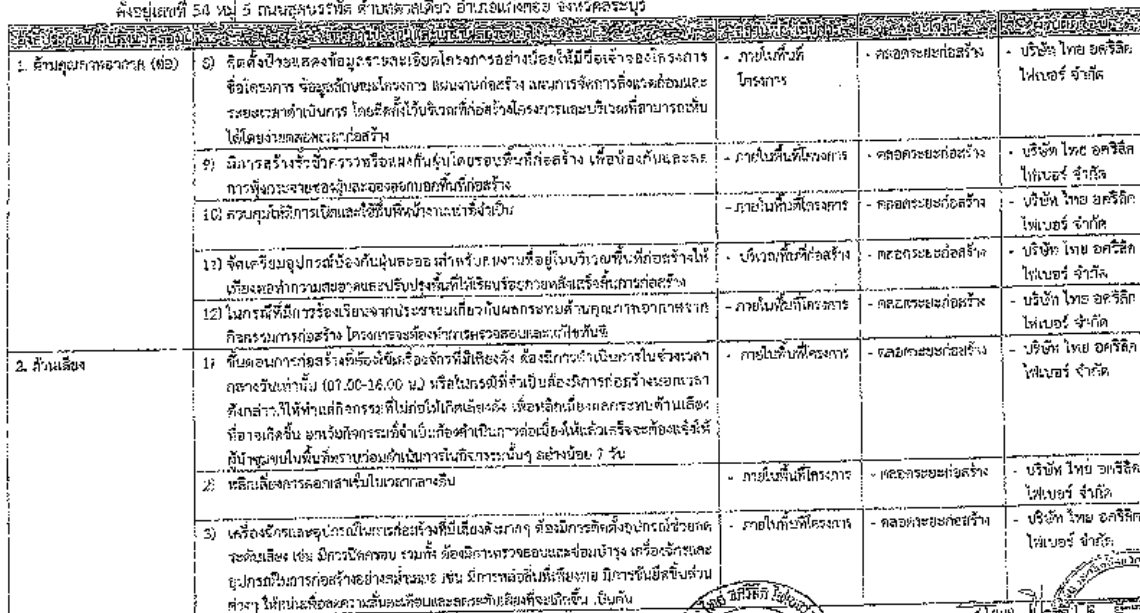 ตั้งอยู่เลขที่ 54 หมู่ 5 ถนนสุดบรรทัด ตำบลตาลเดี่ยว อำเภอแก่งคอย จังหวัดสระบุรี
1. ด้านคุณภาพอากาศ (ต่อ)
8) ติดตั้งป้ายแสดงข้อมูลรายละเอียดโครงการอย่างน้อยให้มีชื่อเจ้าของโครงการ
ชื่อโครงการ ข้อมูลลักษณะโครงการ แผนงานก่อสร้าง แผนการจัดการสิ่งแวดล้อมและ
ระยะเวลาดำเนินการ โดยติดตั้งไว้บริเวณที่ก่อสร้างโครงการและบริเวณที่สามารถเห็น
ได้โดยง่ายตลอดเวลาก่อสร้าง
- ภายในพื้นที่
โครงการ
- ตลอดระยะก่อสร้าง
- บริษัท ไทย อคริลิค
ไฟเบอร์ จำกัด
9) มีการสร้างรั้วชั่วคราวหรือแผงกันฝุ่นโดยรอบพื้นที่ก่อสร้าง เพื่อป้องกันและลด
การฟุ้งกระจายของฝุ่นละอองออกนอกพื้นที่ก่อสร้าง
- ภายในพื้นที่โครงการ
- ตลอดระยะก่อสร้าง
- บริษัท ไทย อคริลิค
ไฟเบอร์ จำกัด
10) ควบคุมให้มีการเปิดและใช้พื้นที่หน้างานเท่าที่จำเป็น
- ภายในพื้นที่โครงการ
- ตลอดระยะก่อสร้าง
- บริษัท ไทย อคริลิค
ไฟเบอร์ จำกัด
11) จัดเตรียมอุปกรณ์ป้องกันฝุ่นละอองสำหรับคนงานที่อยู่ในบริเวณพื้นที่ก่อสร้างให้
เพียงพอทำความสะอาดและปรับปรุงพื้นที่ให้เรียบร้อยภายหลังเสร็จสิ้นการก่อสร้าง
- บริเวณพื้นที่ก่อสร้าง
- ตลอดระยะก่อสร้าง
- บริษัท ไทย อคริลิค
ไฟเบอร์ จำกัด
12) ในกรณีที่มีการร้องเรียนจากประชาชนเกี่ยวกับผลกระทบด้านคุณภาพอากาศจาก
กิจกรรมการก่อสร้าง โครงการจะต้องทำการตรวจสอบและแก้ไขทันที
- ภายในพื้นที่โครงการ
- ตลอดระยะก่อสร้าง
- บริษัท ไทย อคริลิค
ไฟเบอร์ จำกัด
2. ด้านเสียง
1) ขั้นตอนการก่อสร้างที่ต้องใช้เครื่องจักรที่มีเสียงดัง ต้องมีการดำเนินการในช่วงเวลา
กลางวันเท่านั้น (07.00-16.00 น.) หรือในกรณีที่จำเป็นต้องมีการก่อสร้างนอกเวลา
ดังกล่าวให้ทำแต่กิจกรรมที่ไม่ก่อให้เกิดเสียงดัง เพื่อหลีกเลี่ยงผลกระทบด้านเสียง
ที่อาจเกิดขึ้น ยกเว้นกิจกรรมที่จำเป็นต้องดำเนินการต่อเนื่องให้แล้วเสร็จจะต้องแจ้งให้
ผู้นำชุมชนในพื้นที่ทราบก่อนดำเนินการในกิจกรรมนั้นๆ อย่างน้อย 7 วัน
- ภายในพื้นที่โครงการ
- ตลอดระยะก่อสร้าง
- บริษัท ไทย อคริลิค
ไฟเบอร์ จำกัด
2) หลีกเลี่ยงการตอกเสาเข็มในเวลากลางคืน
- ภายในพื้นที่โครงการ
- ตลอดระยะก่อสร้าง
- บริษัท ไทย อคริลิค
ไฟเบอร์ จำกัด
3) เครื่องจักรและอุปกรณ์ในการก่อสร้างที่มีเสียงดังมากๆ ต้องมีการติดตั้งอุปกรณ์ช่วยลด
ระดับเสียง เช่น มีการปิดครอบ รวมทั้ง ต้องมีการตรวจสอบและซ่อมบำรุง เครื่องจักรและ
อุปกรณ์ในการก่อสร้างอย่างสม่ำเสมอ เช่น มีการหล่อลื่นที่เพียงพอ มีการขันยึดชิ้นส่วน
ต่างๆ ให้แน่นเพื่อลดความสั่นสะเทือนและลดระดับเสียงที่จะเกิดขึ้น เป็นต้น
- ภายในพื้นที่โครงการ
- ตลอดระยะก่อสร้าง
- บริษัท ไทย อคริลิค
ไฟเบอร์ จำกัด